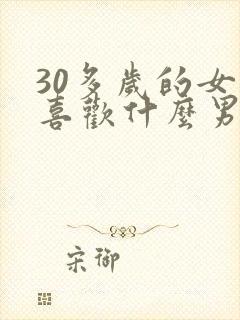 30多歲的女
喜歡什麼男
宋御